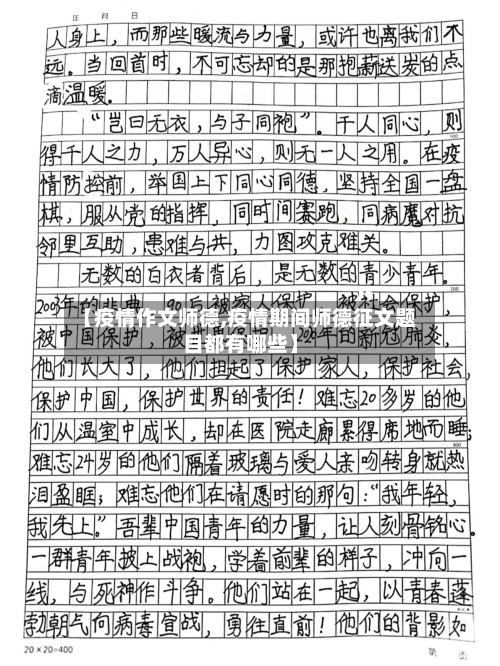 年 月 日
人身上，而那些暖流与力量，或许也离我们不
远。当回首时，不可忘却的是那抱薪送炭的点
滴温暖。
“岂曰无衣，与子同袍”。千人同心，则
得千人之力，万人异心，则无一人之用。在疫
情防控前，举国上下同心同德，坚持全国一盘
棋，服从党的指挥，同时间赛跑，同病魔对抗
邻里互助，患难与共，力图攻克难关。
无数的白衣者背后，是无数的青少年。
2003年的非典，90后被家人保护，被社会保护，
【疫情作文师德,疫情期间师德征文题
被中国保护，被 年的新冠肺炎，
目都有哪些】
他们长大了，他们担起了保护家人，保护社会，
保护中国，保护世界的责任！难忘20多岁的他
们从温室中成长，却在医院走廊累得席地而睡；
难忘24岁的他们隔着玻璃与爱人亲吻转身就热
泪盈眶；难忘他们在请愿时的那句：“我年轻，
我先上。”吾辈中国青年的力量，让人刻骨铭心。
一群青年披上战袍，学着前辈的样子，冲向一
线，与死神作斗争。他们站在一起，以青春蓬
勃朝气向病毒宣战，勇往直前！他们的背影如
20×20=400
第 面